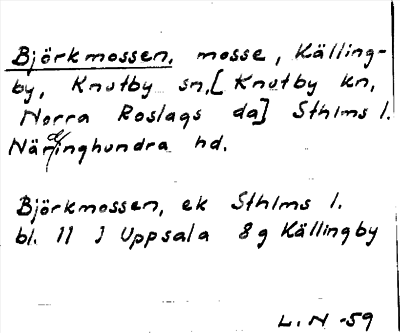 Björkmossen, mosse, Källing-
by, Knutby sn, [Knutby kn,
Norra Roslags da] Sthlms l.
Närdinghundra hd.
Björkmossen, ek Sthlms l.
bl. 11 J Uppsala 8g Källingby
L.N -59